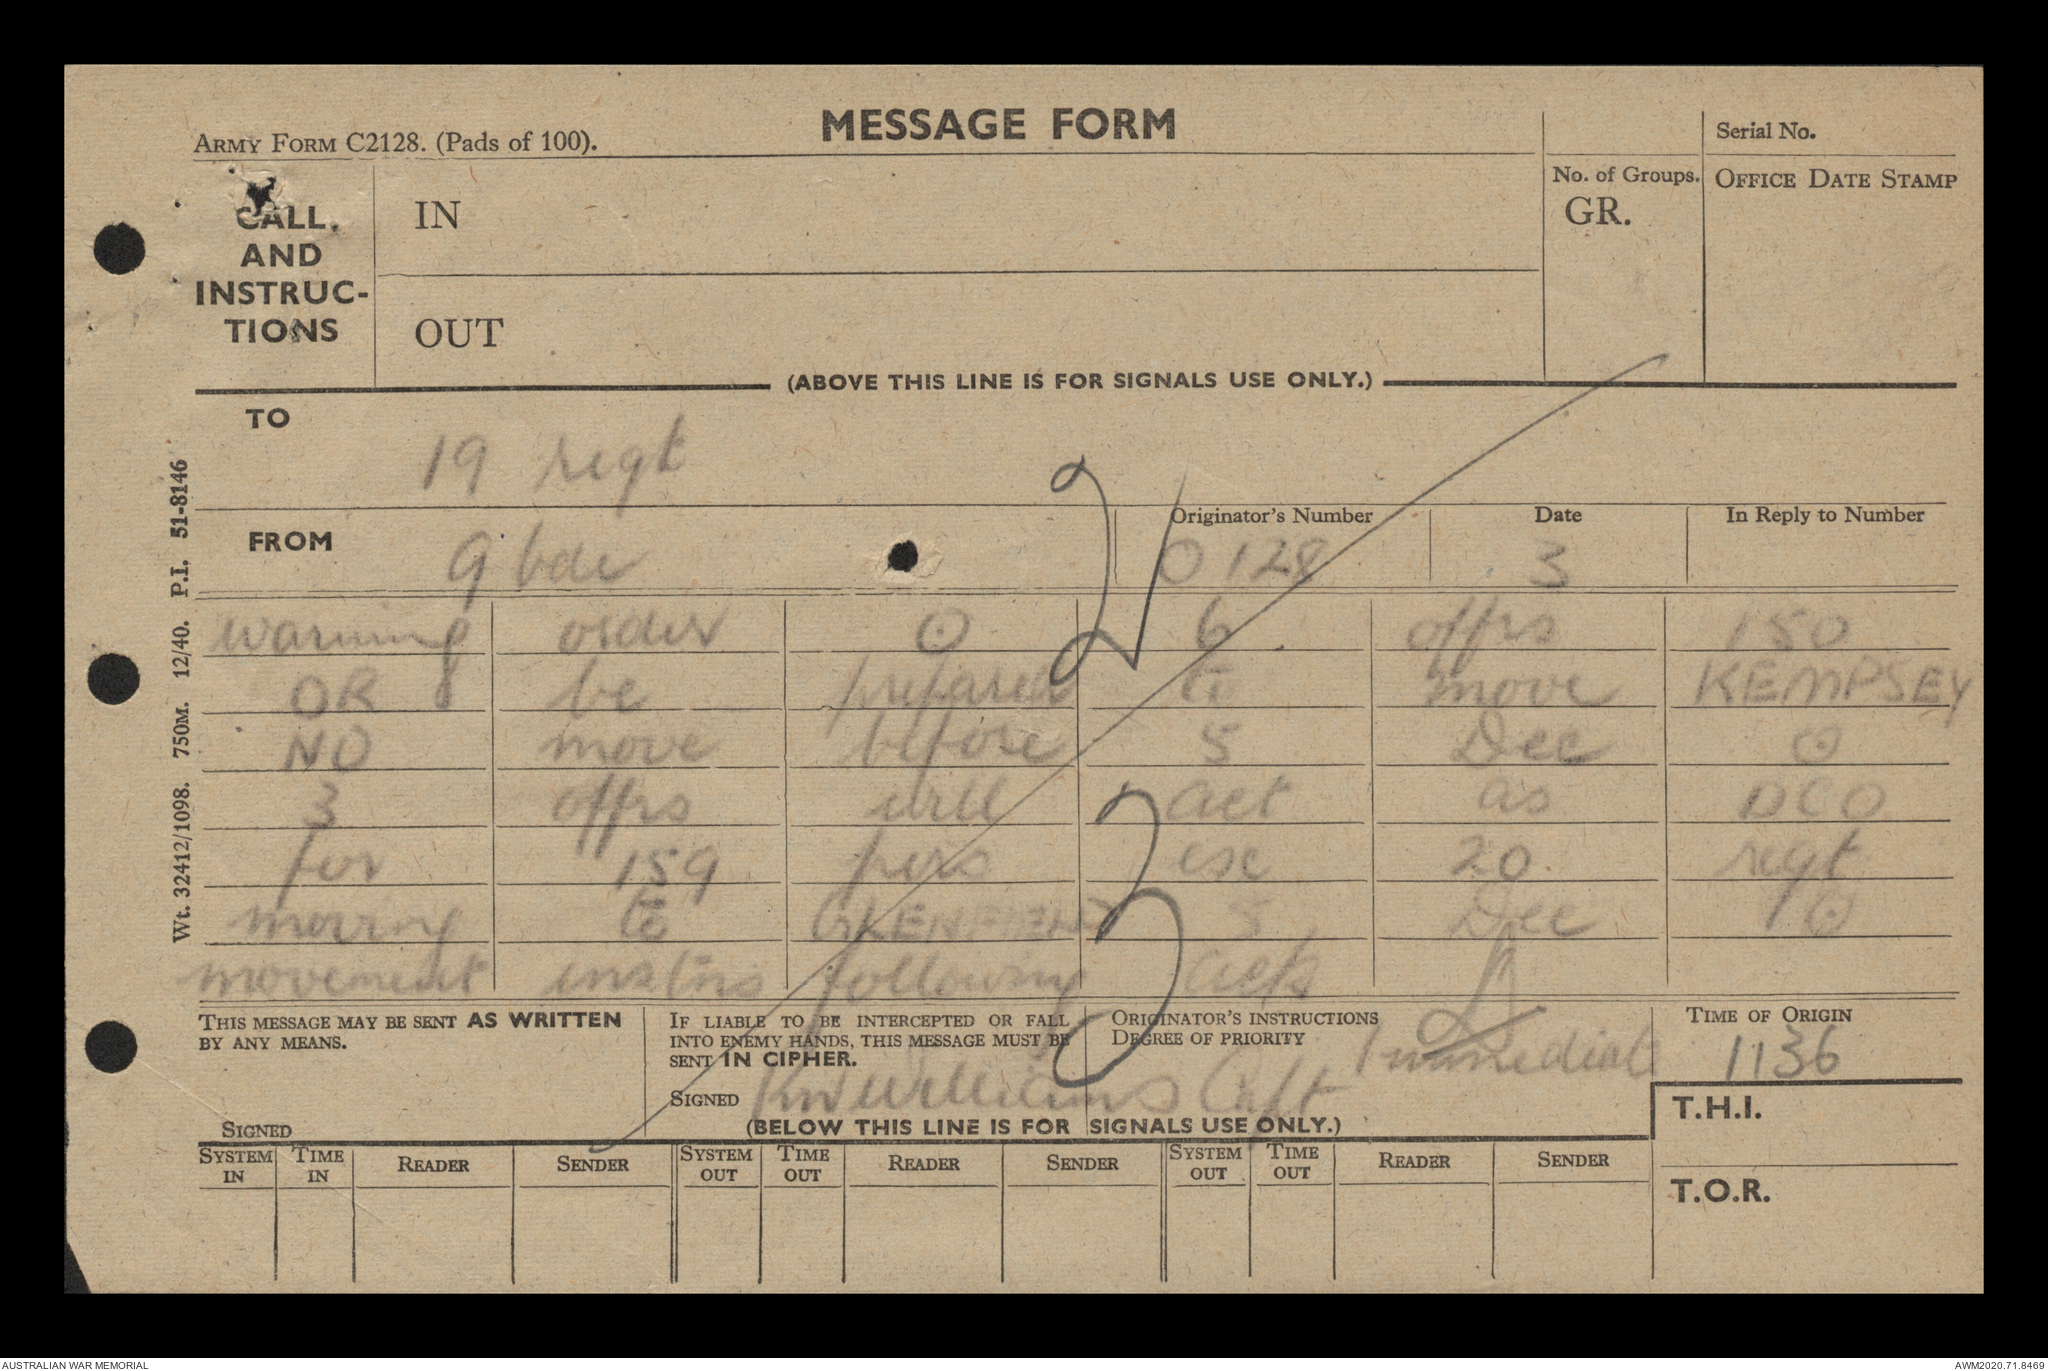 MESSAGE FORM
ARMY FORM C2128. (Pads of 100).
Serial No.
No. of Groups.
GR.
OFFICE DATE STAMP
CALL
AND
INSTRUC-
TIONS
IN
OUT
(ABOVE THIS LINE IS FOR SIGNALS USE ONLY.)
TO
19 regt
FROM
9 bde
Originator's Number
0 128
Date
3
In Reply to Number
warning order ⊙ 6 offrs 150
OR be prepared to move KEMPSEY
NO move before 5 Dec ⊙
3 offrs will act as DCO
for 159 pers ex 20 regt
moving to GLENFIELD 5 Dec ⊙
movement instns following ack
THIS MESSAGE MAY BE SENT AS WRITTEN
BY ANY MEANS.
SIGNED
IF LIABLE TO BE INTERCEPTED OR FALL
INTO ENEMY HANDS, THIS MESSAGE MUST BE
SENT IN CIPHER.
SIGNED Williams Capt
ORIGINATOR'S INSTRUCTIONS
DEGREE OF PRIORITY
Immediate
TIME OF ORIGIN
1136
(BELOW THIS LINE IS FOR SIGNALS USE ONLY.)
T.H.I.
T.O.R.
SYSTEM IN TIME IN READER SENDER SYSTEM OUT TIME OUT READER SENDER SYSTEM OUT TIME OUT READER SENDER
Wt. 32412/1098. 750M. 12/40. P.I. 51-8146
AUSTRALIAN WAR MEMORIAL
AWM2020.71.8469